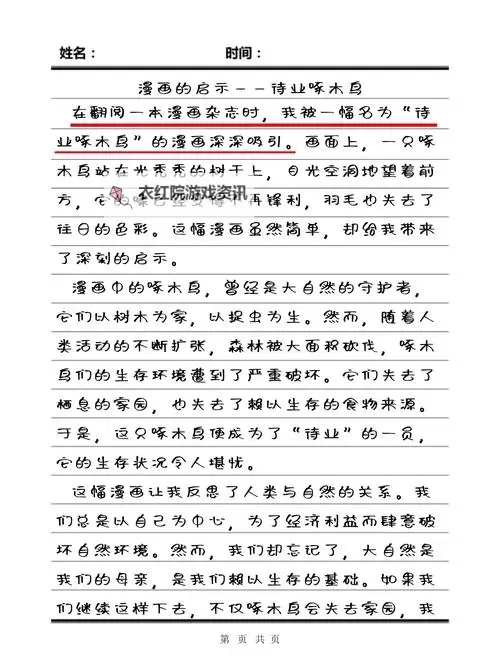 姓名： 时间：
漫画的启示--待业啄木鸟
在翻阅一本漫画杂志时，我被一幅名为“待
业啄木鸟”的漫画深深吸引。画面上，一只啄
木鸟站在光秃秃的树干上，目光空洞地望着前
方，它的喙已经变得不再锋利，羽毛也失去了
衣红院游戏资讯
往日的色彩。这幅漫画虽然简单，却给我带来
了深刻的启示。
漫画中的啄木鸟，曾经是大自然的守护者，
它们以树木为家，以捉虫为生。然而，随着人
类活动的不断扩张，森林被大面积砍伐，啄木
鸟们的生存环境遭到了严重破坏。它们失去了
栖息的家园，也失去了赖以生存的食物来源。
于是，这只啄木鸟便成为了“待业”的一员，
它的生存状况令人堪忧。
这幅漫画让我反思了人类与自然的关系。我
们总是以自己为中心，为了经济利益而肆意破
坏自然环境。然而，我们却忘记了，大自然是
我们的母亲，是我们赖以生存的基础。如果我
们继续这样下去，不仅啄木鸟会失去家园，我
第 页 共 页